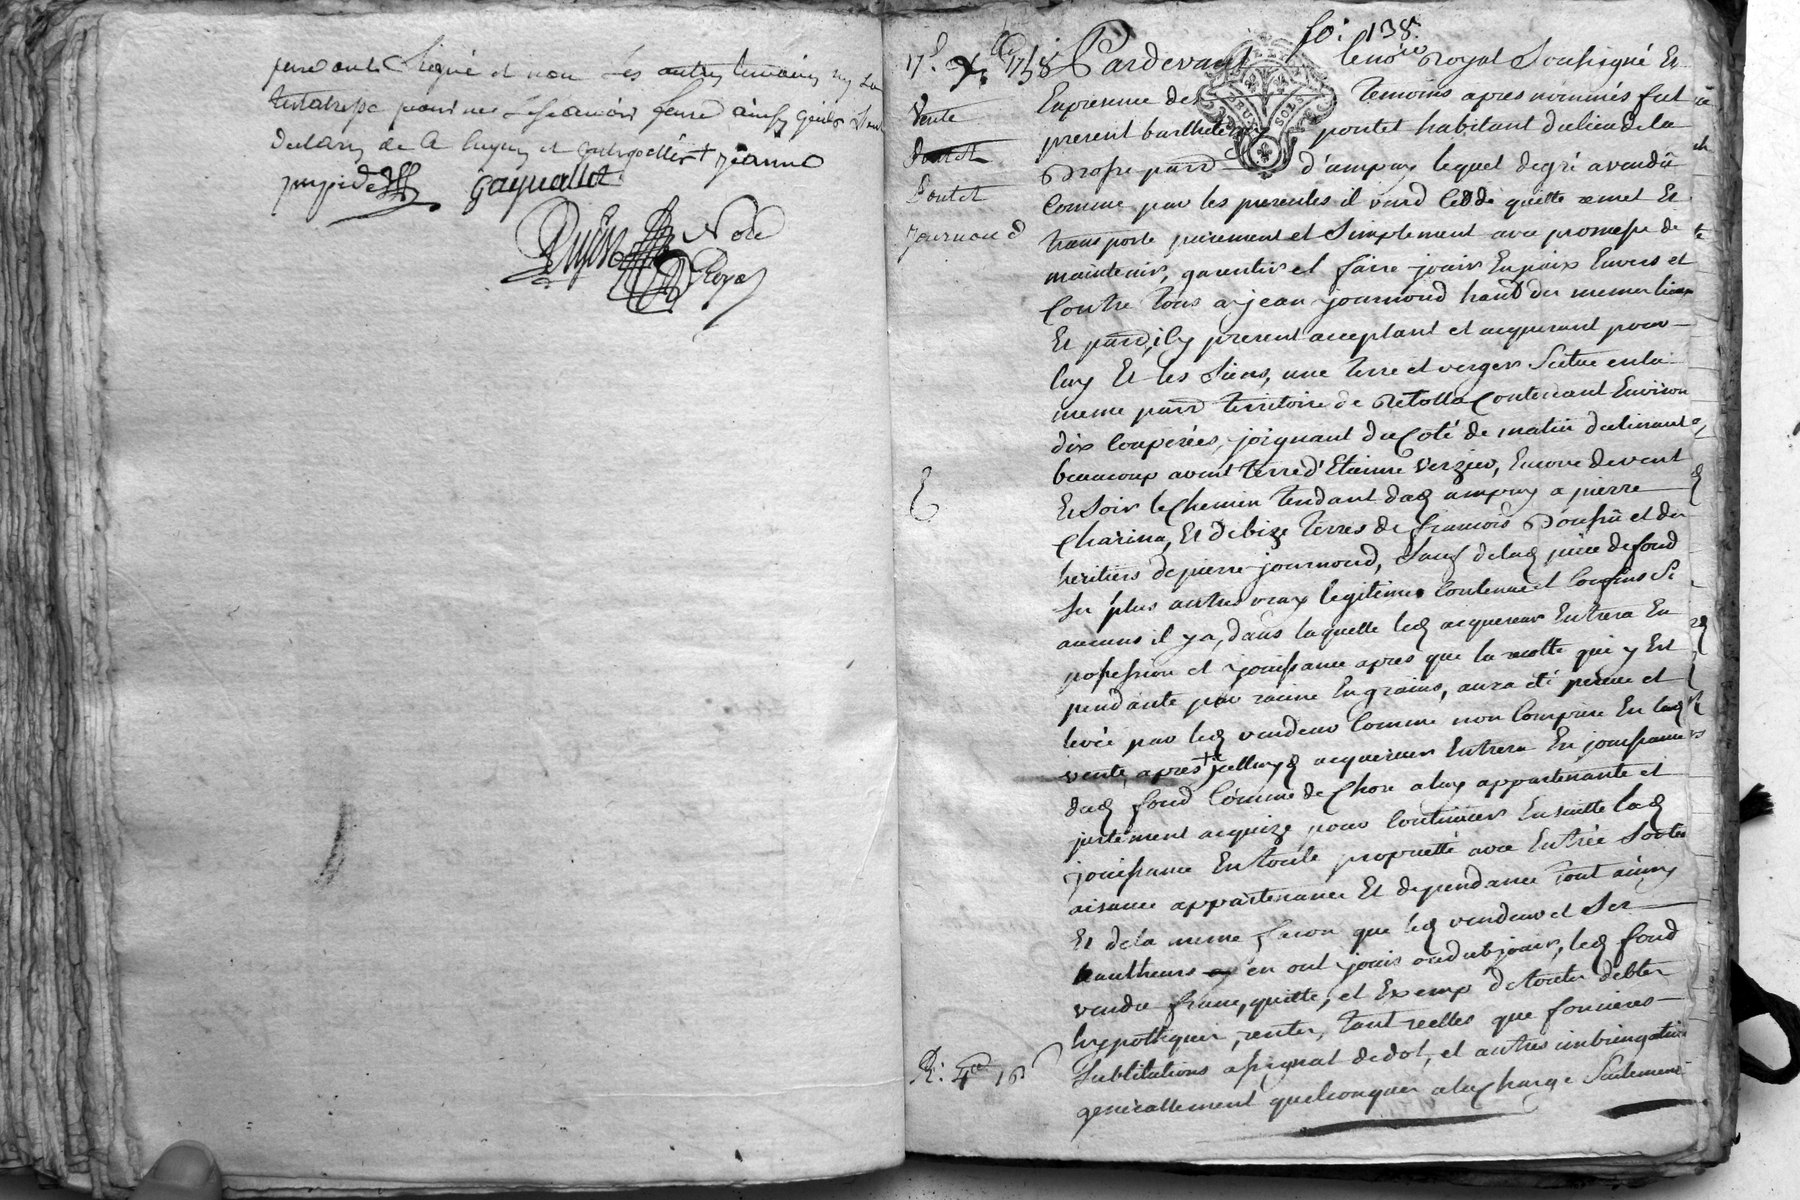 jure ont signé et non les autres temoins ny la
testatrisse pour ne scavoir faire ainsy quils ont
declaré de ce enquis et interpellés + jeanne
gaynallet
No.re
Royal
fo: 138.
17.e X.bre 1758
Vente
Pontet
Pontet
journoud
Pardevant le no.re Royal Soussigné Et
En presence des temoins apres nommés fut
present barthelemy pontet habitant du lieu de la
Brosse paroisse d'ampuy lequel de gré a vendu
comme par les presentes il vend cedde quitte remet Et
transporte purement et simplement avec promesse de
maintenir, garentir et faire jouir En paix Envers et
Contre tous a jean journoud habt du meme lieu
Et parr.e icy present acceptant et acquerant pour
luy Et les siens, une terre et verger scitue en la
meme parr.e territoire de Retolla Contenant Environ
dix couperées, joignant du Coté de matin declinant a
beaucoup avent terre d'Etienne Verzier, Encore de vent
Et soir le Chemin tendant dud ampuy a pierre
Charina, Et de bize terres de francois Bonfin et des
heritiers de pierre journoud, sauf de lad piece de fond
ses plus autres vrays legitimes contenue et confins si
aucuns il y a, dans laquelle led acquereur Entrera En
possession et jouissance apres que la recolte qui y Est
pendante par racine En grains, aura eté percue et
levée par led vendeur Comme non Comprise En lad
vente, apres + icelluy d acquereur Entrera En jouissance
dud fond Comme de Chose a luy appartenante et
justement acquize, pour Continuer Ensuitte lad
jouissance En toute proprietté avec Entrée Sorties
aisance appartenance Et dependance tout ainsy
Et de la meme facon que led vendeur et Ses
hautheurs en ont jouis ou dub jouir, led fond
vendu franc, quitte, et Exemp de toutes debtes
hypotheques, rentes, tant reelles que foncieres
Substitutions assignat de dot, et autres inbringations
generallement quelconques a la Charge seulement